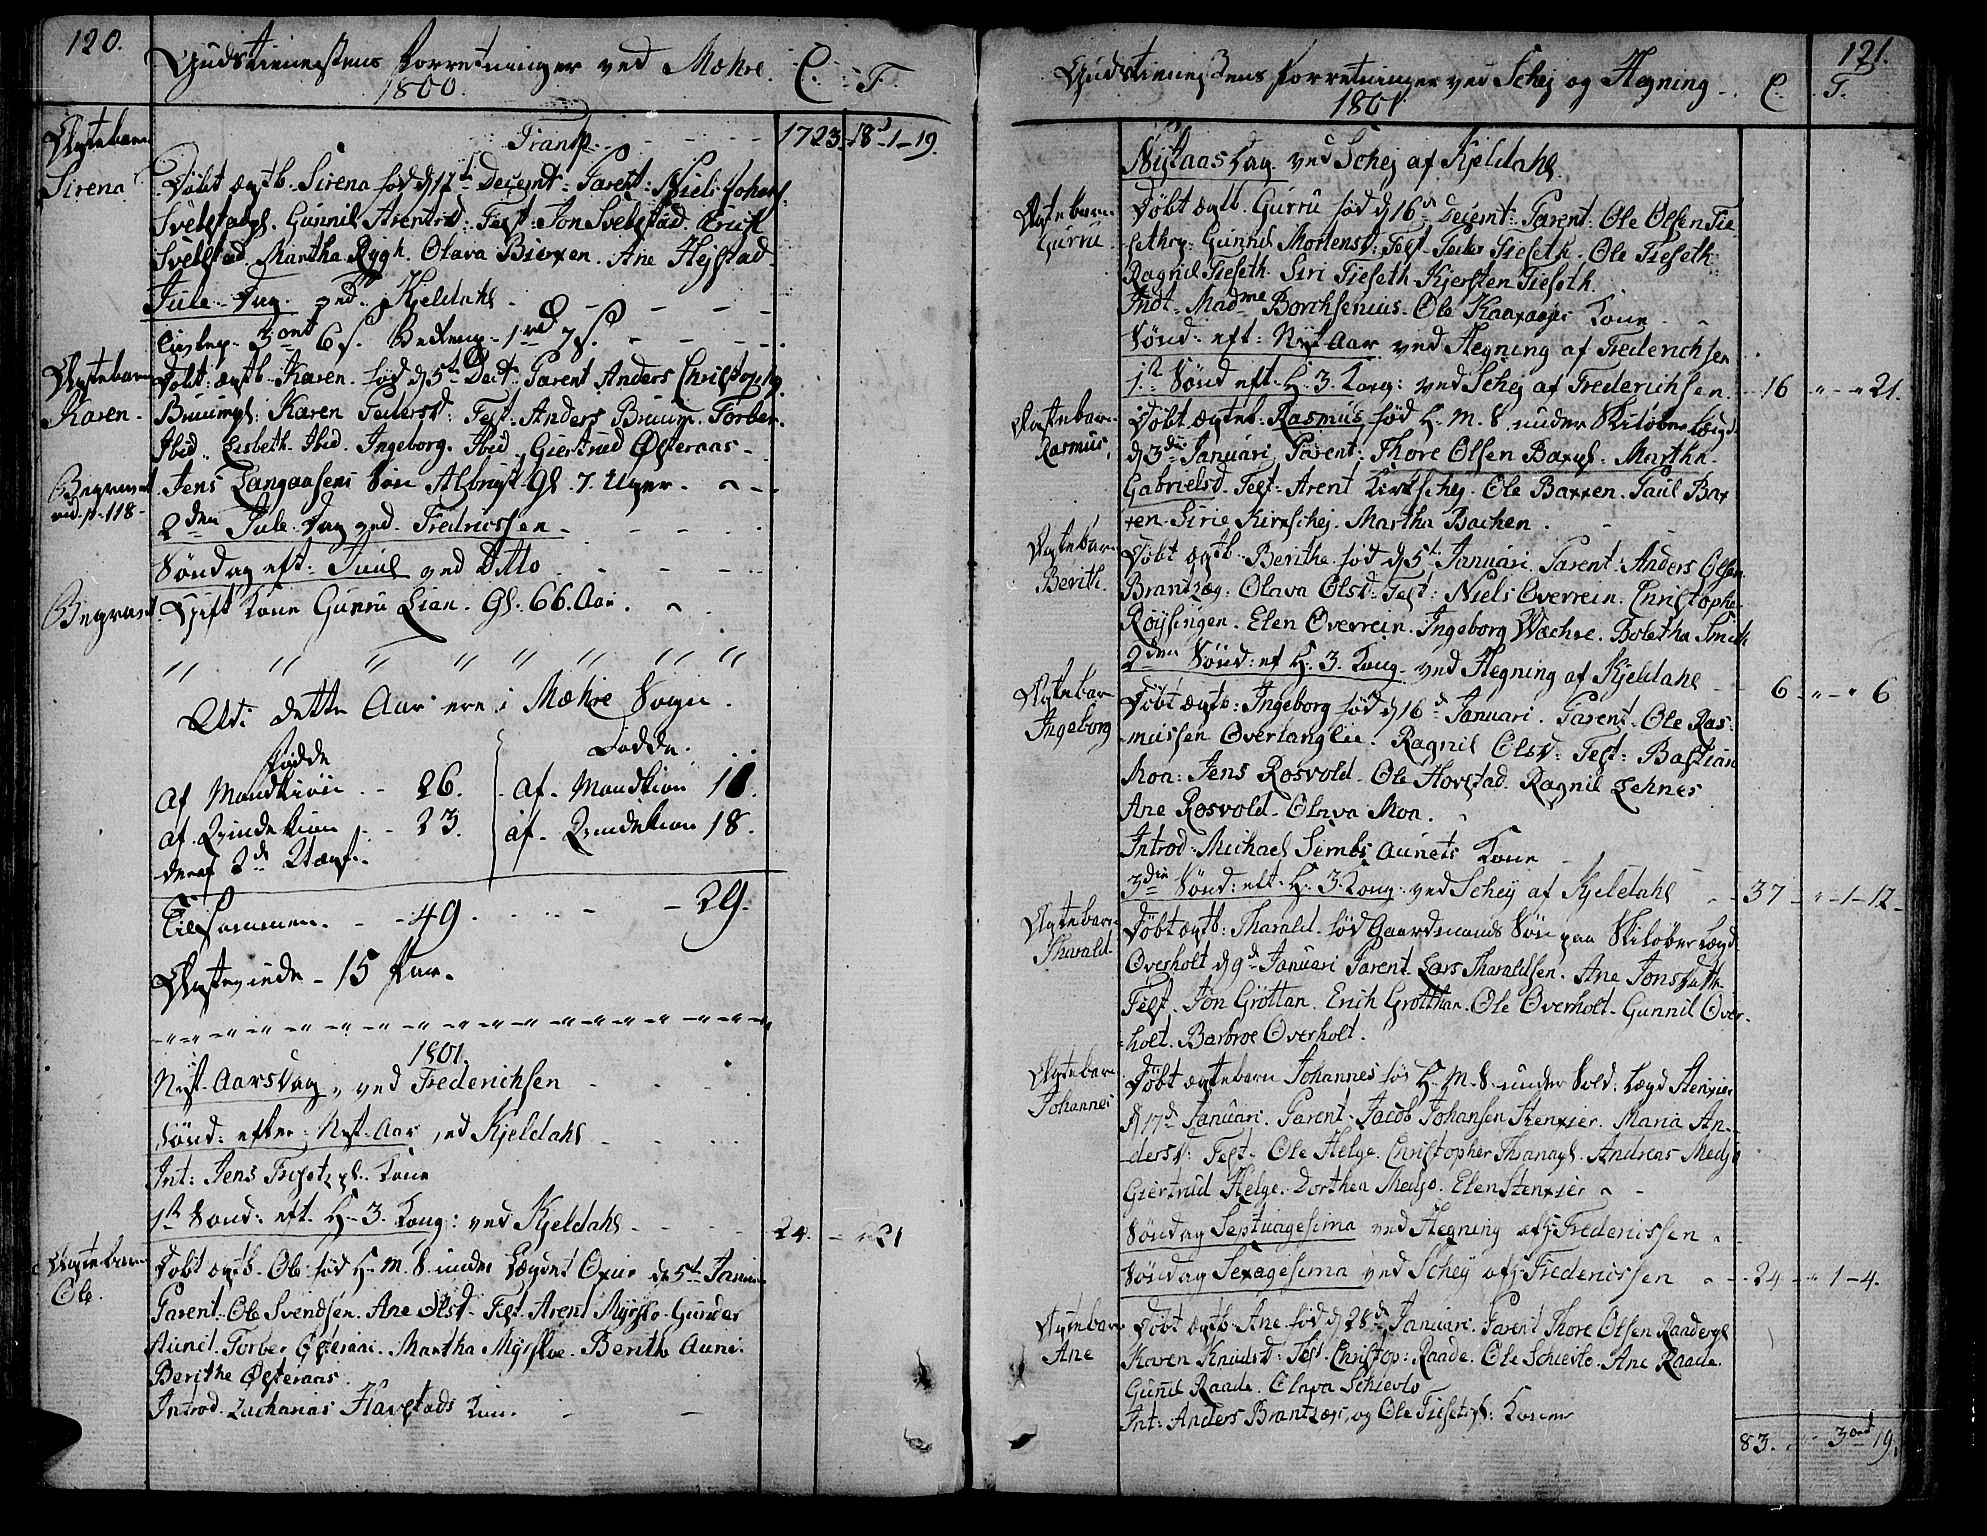 120.
Gudstienestens Forretninger ved Mæhre. C. T.
1800.
Ægtebarn Transp. 1723 - 18 - 1 - 19.
Sirena Døbt ægtb. Sirena fød d 17de Decembr. Parent: Niels Johans.
Svebstadgl. Gunnil Arentsd: Test: Jon Svebstad. Erich
Svebstad. Martha Rygh. Olava Bierken. Ane Hejstad
Jule-Dag. ved Kjeldahl
3 ort 6 s. 1 rd 7 s.
Ægtebarn Døbt: ægtb. Karen. fød d 5te Dect. Parent Anders Christoph.
Karen - Bruumgl: Karen Pedersd: Test: Anders Bruum. Torber
Ibid. Lisbeth. Ibid. Ingeborg. Ibid. Giertrud Østeraas -
Begravet Jens Langaasens Søn Albrigt Gl. 7. Uger.
vid. p. 118 -
2den Jule-Dag ved Fredricssen
Søndag eft: Juul ved Ditto
Begravet. Gift Kone Gunru Lian. Gl. 66. Aar.
Udi dette Aar ere i Mæhre Sogn.
fødde Dødde.
Af Mandkiøn - 26. af Mandkiøn 11.
af Qvindekiøn - 23. af Qvindekiøn 18.
deraf 2de Uægt.
Tilsammen. - 49. - 29.
Ægteviede - 15 Par.
1801.
Nyt-Aars Dag, ved Frederichsen
Sønd: efter: Nyt-Aar, ved Kjeldahl
Int: Jens Kone
1ste Sønd: eft. H. 3. Kong: ved Kjeldahl - 24. - 21
Ægtebarn Døbt ægtb. Ole fød H. M. S. under Lægdet Oxur d 5te Januar
Ole. Parent: Ole Svendsen. Ane Olsd. Test. Arent Myrslo. Gunder
Aunet. Torber Østeraas. Martha Mysloe. Berith Aune.
Berithe Østeraas.
Introd. Zacharias Havstads Kone.
121.
Gudstienestens Forretninger ved Schej og Hegning C. T.
1801.
Nytaars Dag ved Schej af Kjeldahl.
Ægtebarn Døbt ægtb. Gurru fød d 16de Decembr: Parent: Ole Olsen Tie-
Gurru. sethgl: Gunnil Mortensd: Test. Peder Tieseth. Ole Tieseth
Ragnil Tieseth. Siri Tieseth. Kjersten Tieseth.
Indt. Madme Borchsenius. Ole Kone
Sønd: eft: Nyt-Aar ved Hegning af Frederichsen
1ste Sønd eft. H. 3. Kong: ved Schej af Frederichsen. - 16 21.
Ægtebarn Døbt ægteb. Rasmus fød H. M. S. under Skiløber Lægd
Rasmus, d 3die Januari, Parent: Thore Olsen Baxgl: Martha
Gabrielsd. Test. Arent Kirkschej. Ole Bakken. Paul Bak-
ken. Sirie Kirkschej. Martha Bachen.
Ægtebarn Døbt ægtb. Berithe fød d 5te Januari. Parent: Anders Olsen
Berith. Brantzæg: Olava Olsd: Test: Niels Overrein. Christopher
Røysingen. Elen Overrein. Ingeborg Wæchre. Boletha Smith
2den Sønd: ef H. 3. Kong - ved Hegning af Kjeldahl 6 6
Ægtebarn Døbt ægtb: Ingeborg fød d 16de Januari. Parent. Ole Ras-
Ingeborg mussen Overlanglie. Ragnil Olsd: Test: Bastian
Moa: Jens Rosvold. Ole Hovstad. Ragnil Lehnes
Ane Rosvold. Olava Moa.
Introd: Michael Sembs aunets Kone
3die Sønd: eft. H. 3. Kong: ved Schej af Kjeldahl - 37 - 1 - 12
Ægtebarn Døbt ægtb: Tharald. fød Gaardmands Søn paa Skiløber Lægd
Tharald Overholt d 9de Januari Parent. Lars Tharaldsen. Ane Jonsdatter
Test. Jon Grøttan. Erich Grøtthan. Ole Overholt. Gunnil Over-
holt. Barbroe Overholt.
Ægtebarn Døbt ægtebarn Johannes fød H. M. S. under Sold: Lægd Stenkier
Johannes d 17de Januari. Parent. Jacob Johansen Stenkier. Maria An-
dersd: Test. Ole Helge. Christopher Thranagl. Andreas Medjo
Giertrud Helge. Dorthea Medjo. Elen Stenkier
Søndag Septuagesima ved Hegning af Fredericssen
Søndag Sexagesima ved Schey af Fredericssen - 24 - 1 - 4.
Ægtebarn Døbt ægtb. Ane fød d 28de Januari. Parent Thore Olsen Raadergl
Ane Karen Knudsd: Test. Christop: Raade. Ole Schievlo. Ane Raade.
Gunil Raade. Olava Schievlo
Int: Anders Brantzæg, og Ole Tiesetgl: Koner
83. 3 ort 19.